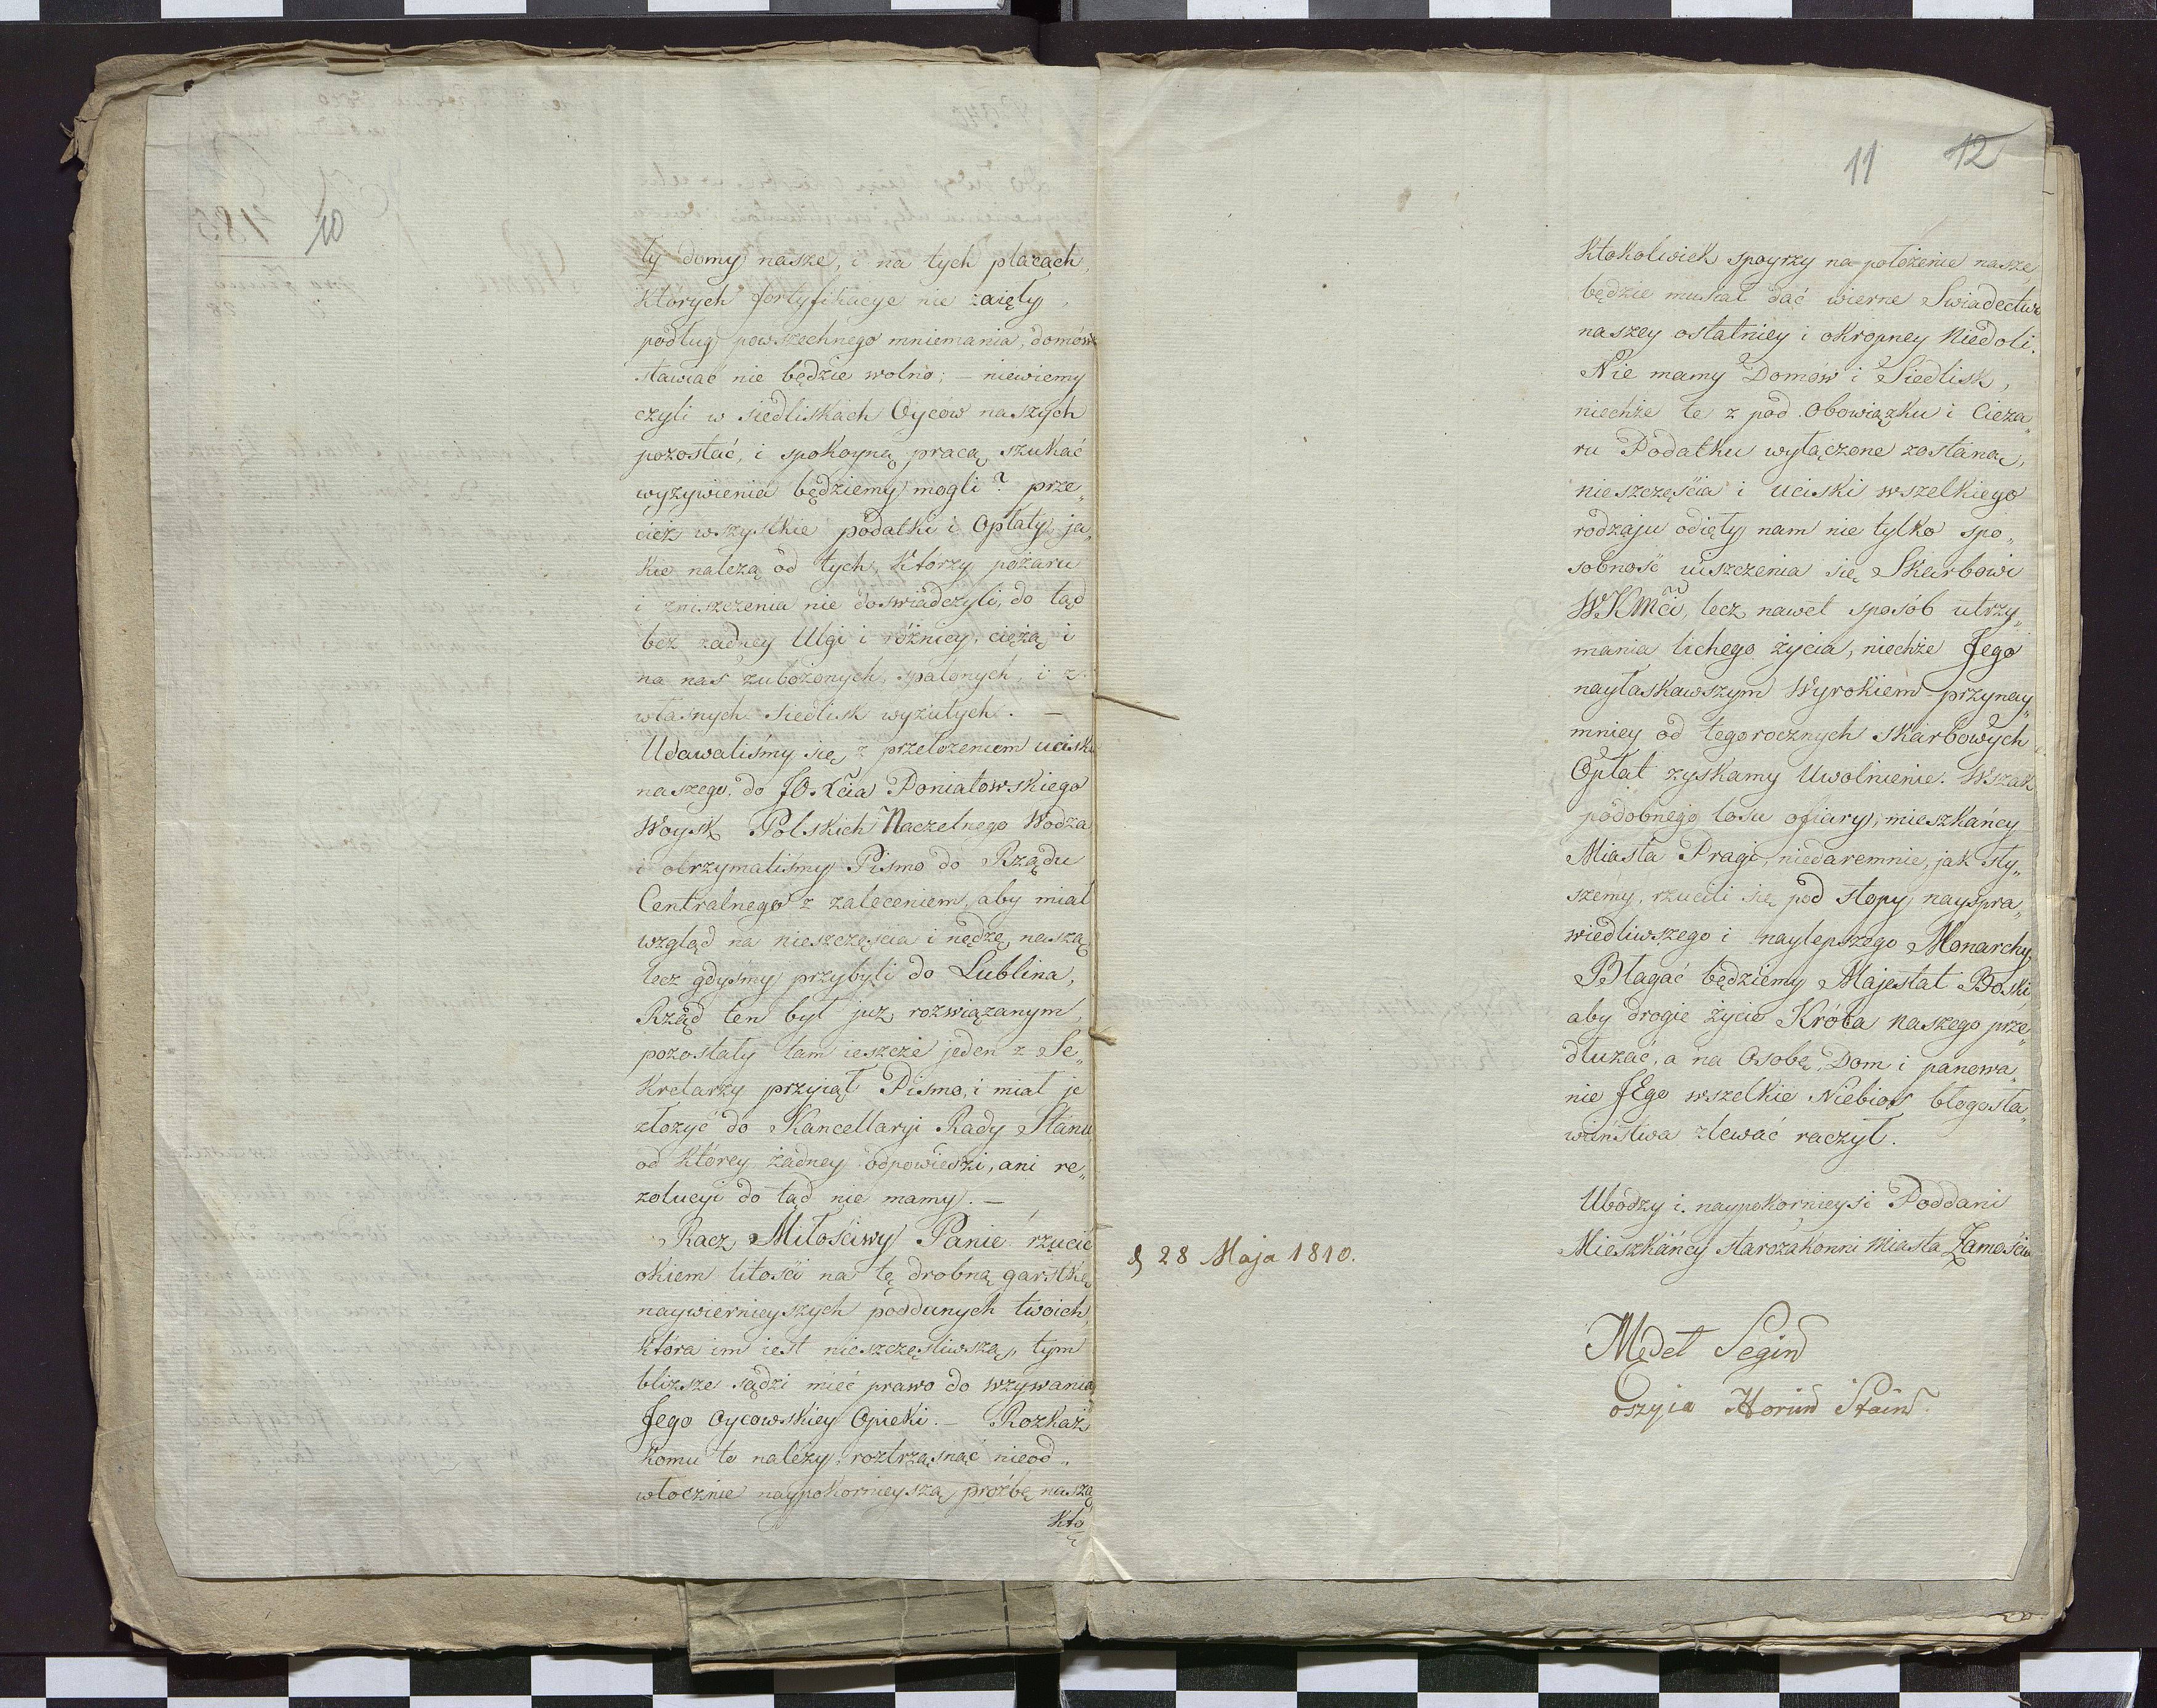 ty domy nasze, i na tych placach,
których fortyfikacye nie zaięły,
podług powszechnego mniemania, domów
stawiać nie będzie wolno; – niewiemy
czyli w siedliskach Oyców naszych
pozostać, i spokoyną pracą szukać
wyzywienia będziemy mogli? prze„
cież wszystkie podatki i Opłaty ja„
kie nalezą od tych, którzy pożaru
i zniszczenia nie doswiadczyli, do tąd
bez zadney Ulgi i różnicy, ciężą i
na nas zubożonych, spalonych, i z
własnych siedlisk wyzutych. –
Udawaliśmy się z przełożeniem ucisku
naszego, do JO. Xcia Poniatowskiego
Woysk Polskich Naczelnego Wodza
i otrzymaliśmy Pismo do Rządu
Centralnego z zaleceniem, aby miał
wzgląd na nieszczęścia i nędzę naszą,
lecz gdyśmy przybyli do Lublina,
Rząd ten był juz rozwiązanym,
pozostały tam ieszcze jeden z Se„
kretarzy przyiął Pismo, i miał je
złożyć do Kancellaryi Rady Stanu
od którey żadney odpowieszi, ani re„
zolucyi do tąd nie mamy. –
Racz Miłościwy Panie rzucić
okiem litości na tę drobną garstkę
naywiernieyszych poddanych twoich,
która im iest nieszczęsliwszą, tym
blizsze sądzi mieć prawo do wzywania
Jego Oycowskiey Opieki. – Rozkaż
komu to należy, roztrząsnąć nieod„
włocznie naypokornieyszą prożbę naszą
kto
11 12
10
Ktokolwiek spoyrzy na położenie nasze,
będzie musiał dać wierne Swiadectwo
naszey ostatniey i okropney Niedoli.
Nie mamy Domów i Siedlisk,
niechże te z pod Obowiązku i Cięża„
ru Podatku wyłączone zostaną,
nieszczęścia i uciski wszelkiego
rodzaju odięły nam nie tylko spo„
sobność uiszczenia się Skarbowi
WKMci, lecz nawet sposób utrzy„
mania lichego życia, niechże Jego
nayłaskawszym Wyrokiem przynay„
mniey od tegorocznych Skarbowych
Opłat zyskamy Uwolnienie. Wszak
podobnego losu ofiary, mieszkańcy
Miasta Pragi, niedaremnie, jak sły„
szemy, rzucili się pod stopy nayspra„
wiedliwszego i naylepszego Monarchy
Błagać będziemy Majestat Boski
aby drogie życie Króla naszego prze„
dłuzać, a na Osobę, Dom i panowa„
nie JEgo wszelkie Niebios błogosła„
wieństwa zlewać raczył.
Ubodzy i naypokornieysi Poddani
Mieszkańcy starozakonni Miasta Zamościa
28 Maja 1810.